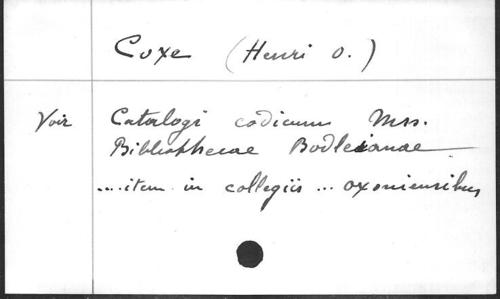 Coxe (Henri O.)
Voir Catalogi codicum Mss.
Bibliothecae Bodleianae
....item in collegiis ... oxoniensibus